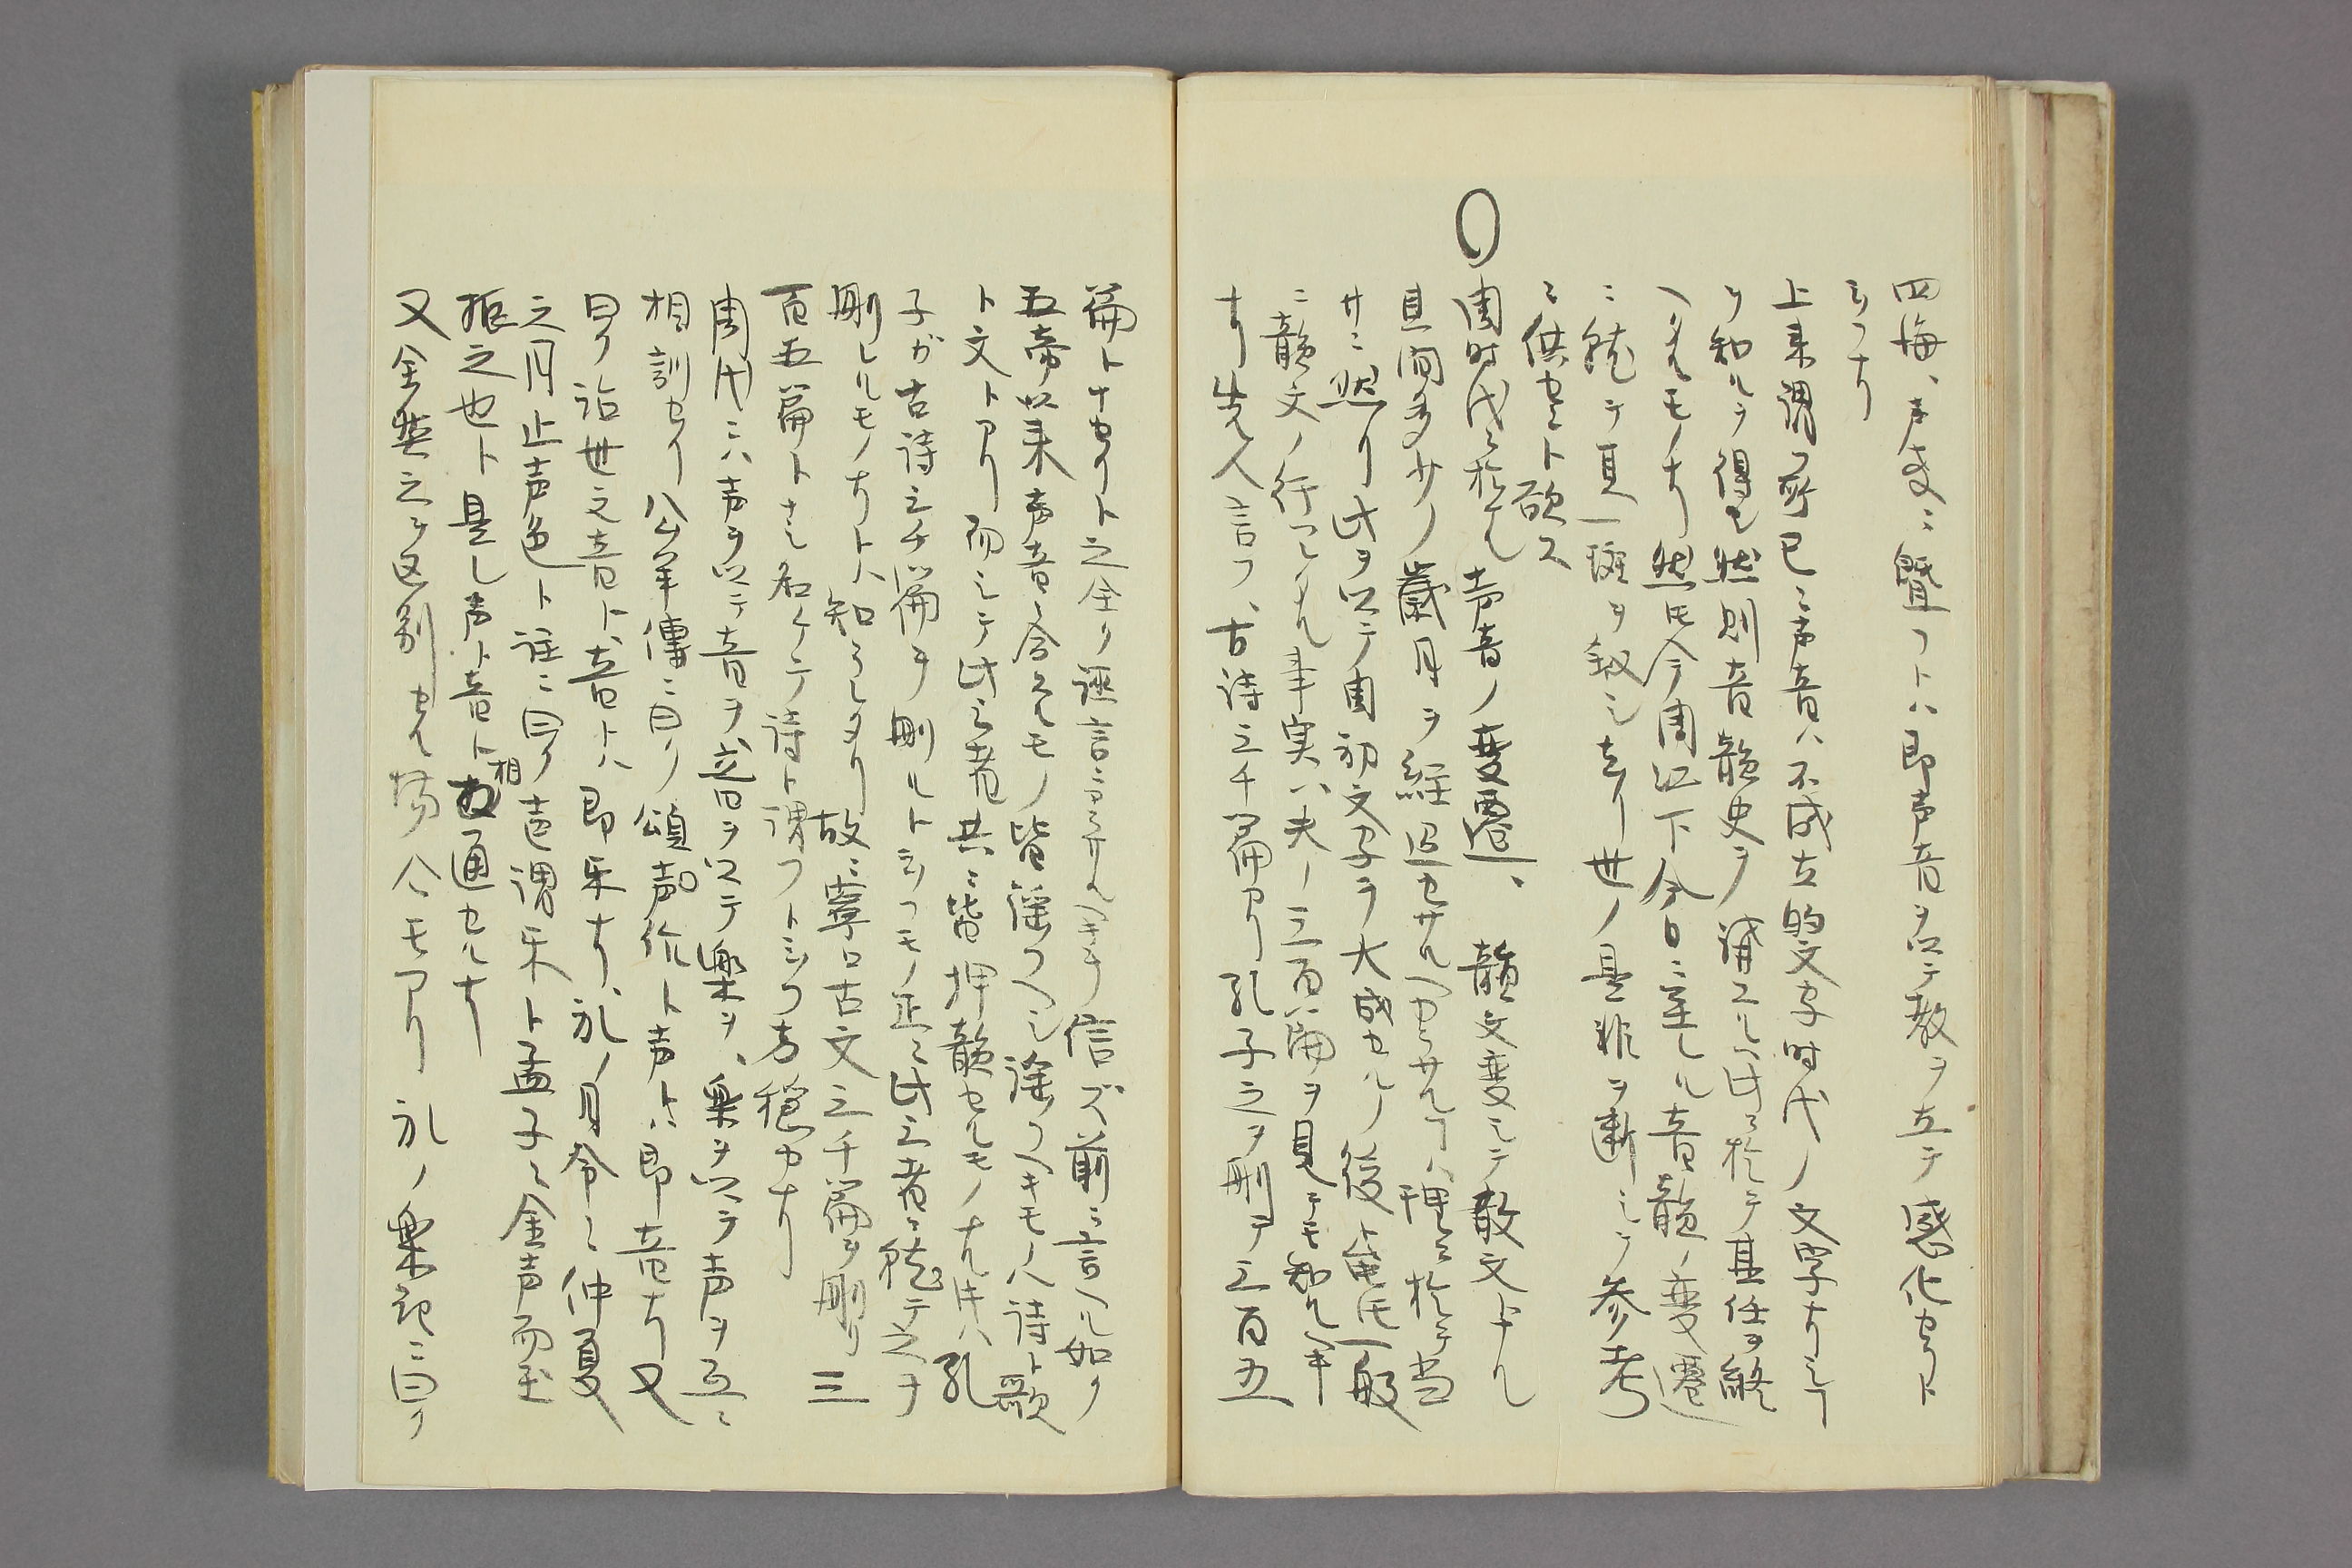 四海、声教ニ曁フトハ即声音ヲ以テ教ヲ立テ感化セリト
云フナリ
上来謂フ所已ニ声音ハ不成立的文字時代ノ文学ナリシコ
ヲ知ルヲ得ヒ然則音韻史ヲ講スルハ此ニ於テ其任ヲ終
ヘタルモノナリ然氏今周以下今日ニ至ル音韻ノ変遷
ニ就テ其一斑ヲ叙シ去リ世ノ是非ヲ断シテ参考
ニ供セント欲ス
〇周時代ニ於ル声音ノ変遷、韻文変シテ散文トナル
其間多少ノ歳月ヲ経過セサルヘカラサルコハ理ニ於テ当
サニ然リ此ヲ以テ周初文学ヲ大成セルノ後ト雖氏一般
ニ韻文ノ行ハレタル事実ハ夫ノ三百篇ヲ見テモ知ルヘキ
ナリ先人言フ、古詩三千篇アリ孔子之ヲ刪テ三百五
篇トナセリト之全ク謬言ニシテ信ズ前ニ言ヘル如ク
五帝以来声音ニ合スルモノ皆謡フヘシ謡フヘキモノハ詩ト歌
ト文トアリ而シテ此三者共ニ皆押韻セルモノナル中ハ孔
子ガ古詩三千篇ヲ刪ルト云フモノ正ニ此三者ニ就テ之ヲ
刪レルモノナリト知ラレタリ故ニ寧ロ古文三千篇ヲ刪リ三
百五篇トナシ名ケテ詩ト謂フト云フ方穏カナリ
周代ニハ声ヲ以テ音ヲ、音ヲ以テ楽ヲ、楽ヲ以テ声ヲ互ニ
相訓セリ公羊傳ニ曰ク頌声作ト声トハ即音ナリ又
曰ク治世之音ト音トハ即楽ナリ、礼ノ月令ニ仲夏
之月止声色ト註ニ曰ク声謂楽ト孟子ニ金声而玉
振之也ト是レ声ト音ト相通セルナリ
又全然之ヲ区別セル場合モアリ礼ノ楽記ニ曰ク